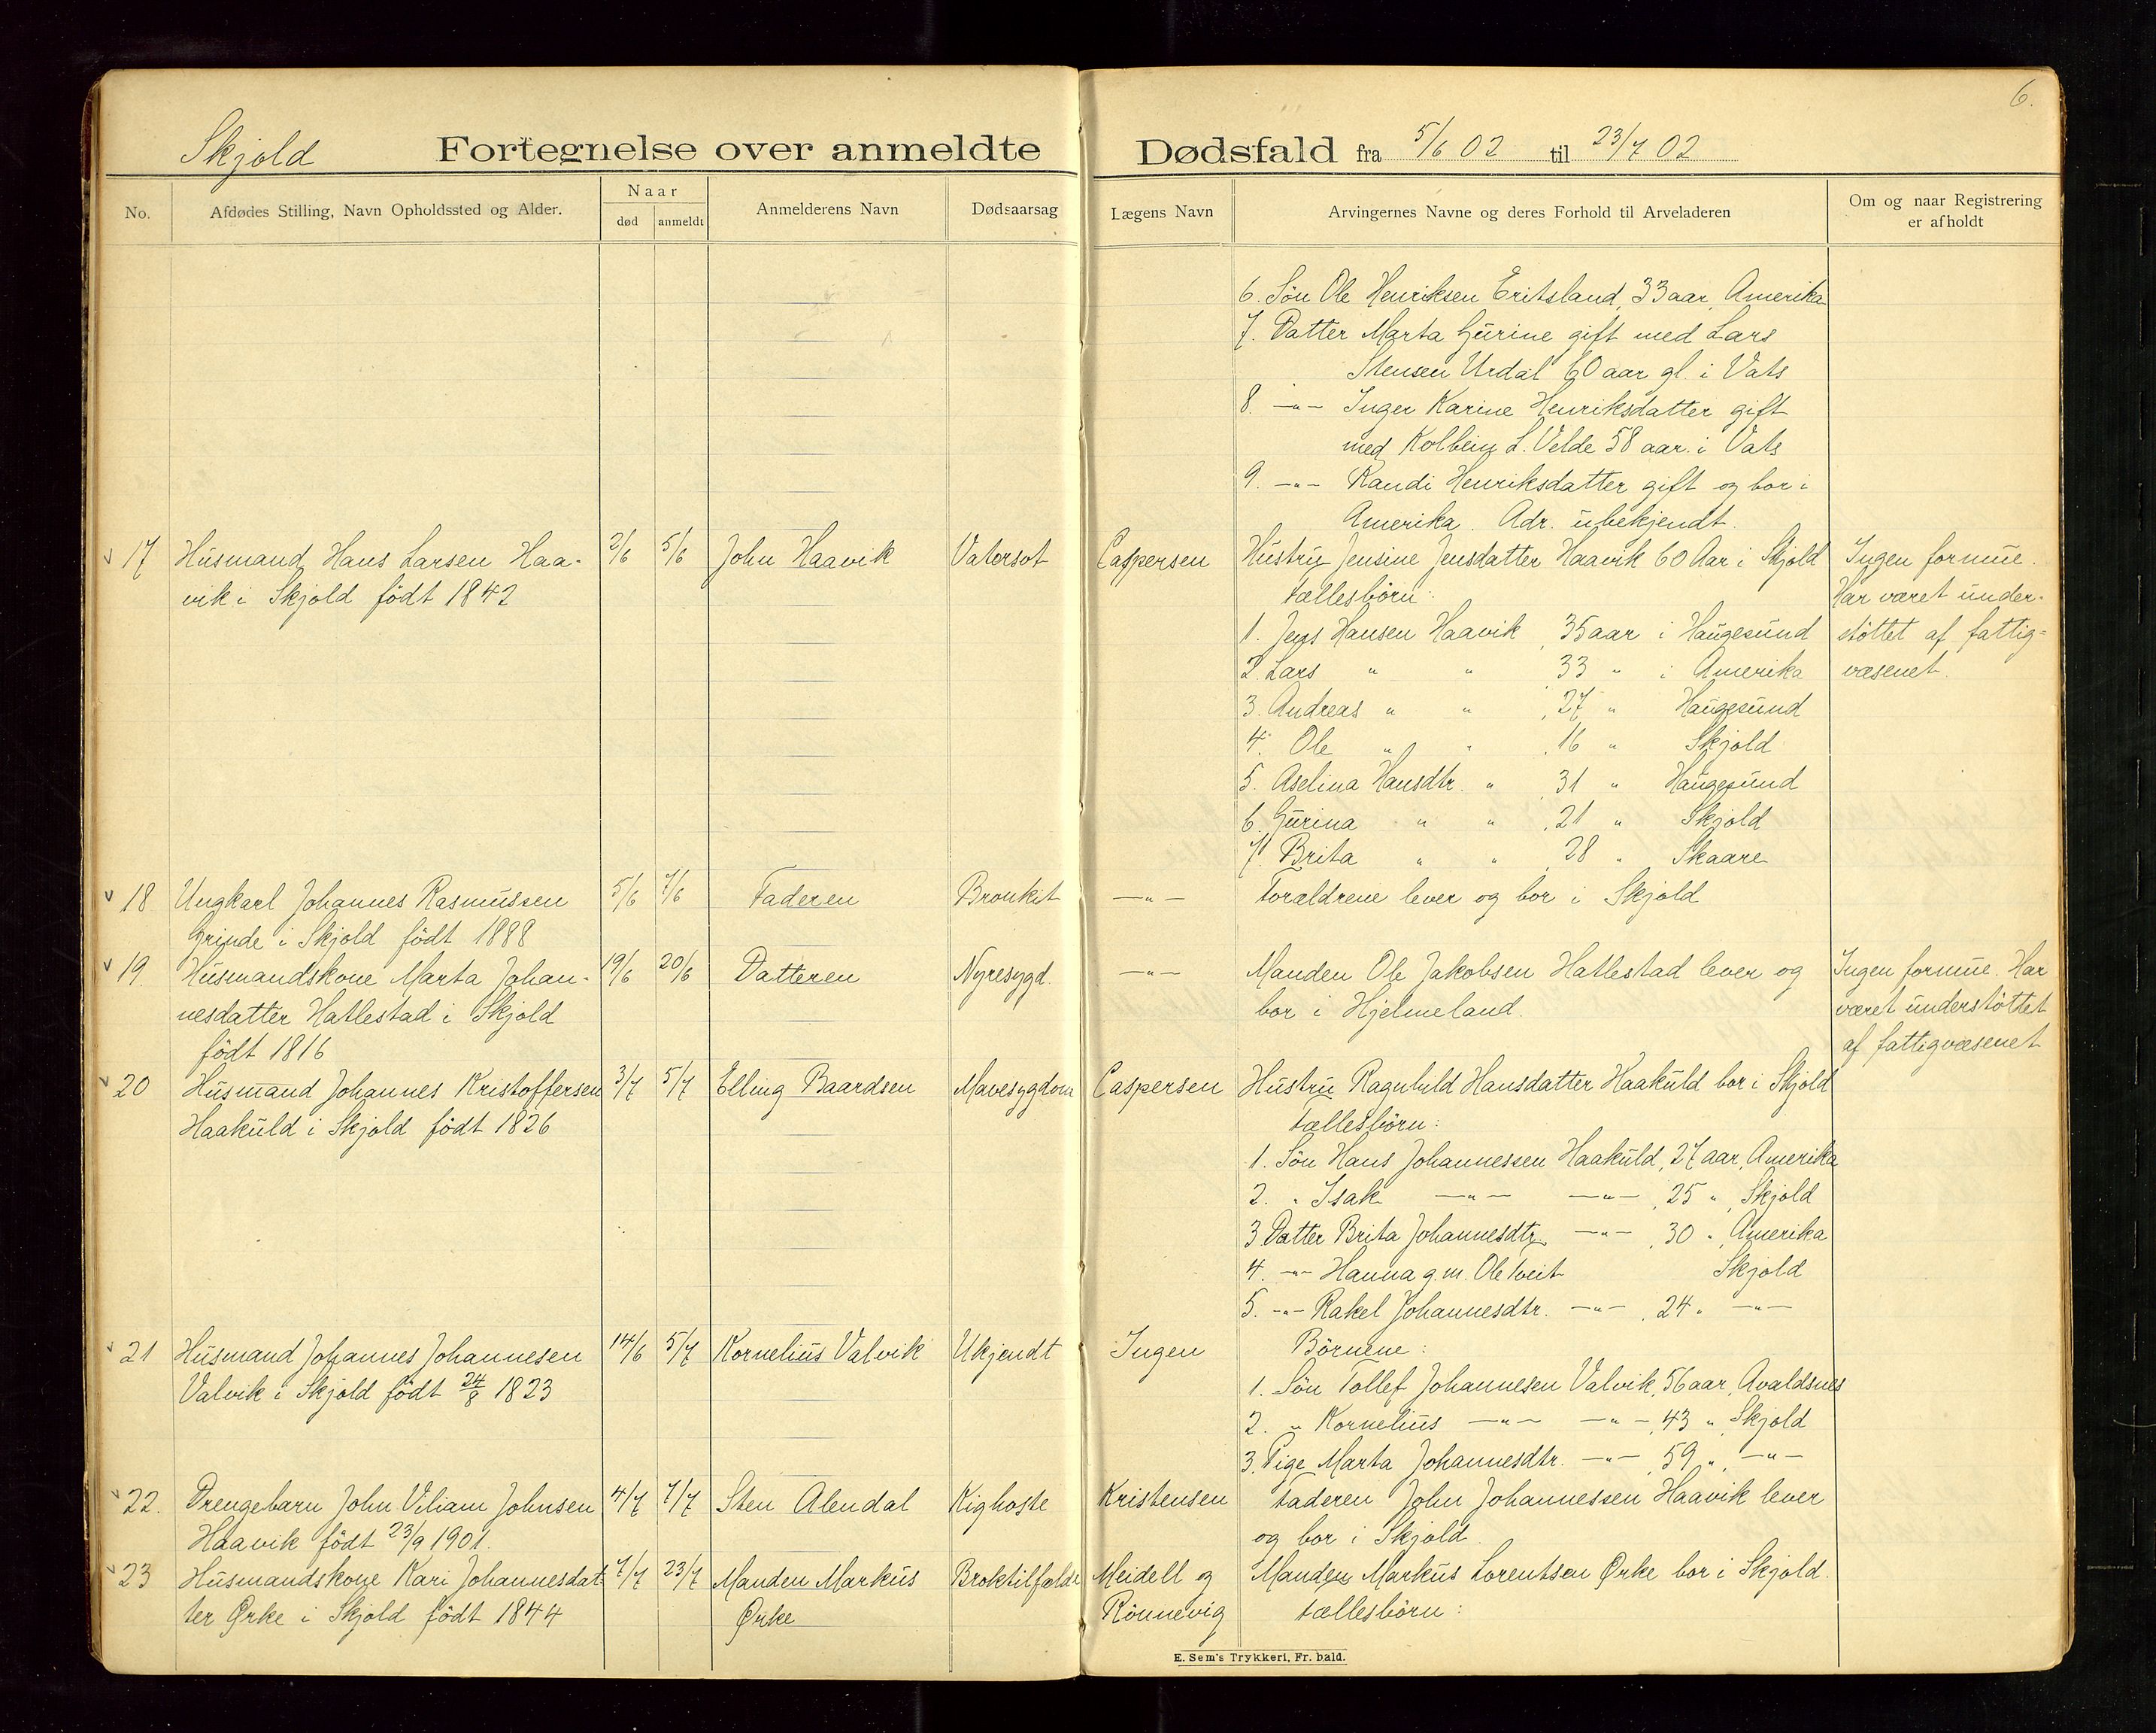 6.
Skjold Fortegnelse over anmeldte Dødsfald fra 5/6 02 til 23/7 02
No. Afdødes Stilling, Navn Opholdssted og Alder. Naar død anmeldt Anmelderens Navn Dødsaarsag Lægens Navn Arvingernes Navne og deres Forhold til Arveladeren Om og naar Registrering er afholdt
6. Søn Ole Henriksen Eritsland, 33 aar, Amerika
7. Datter Marta Gurine gift med Lars
Stensen Urdal 60 aar gl. i Vats
8. -"- Inger Karine Henriksdatter gift
med Kolbein L. Velde 58 aar. i Vats
9. -"- Randi Henriksdatter gift og bor i
Amerika. Adr. ubekjendt.
17 Husmand Hans Larsen Haa- 2/6 5/6 John Haavik Vatersot Caspersen Hustru Jensine Jensdatter Haavik 60 Aar i Skjold Ingen formue.
vik i Skjold født 1842 Fællesbørn: Har været under-
1. Jens Hansen Haavik, 35 aar i Haugesund støttet af fattig=
2. Lars " " 33 " i Amerika væsenet.
3. Andreas " " , 27 " Haugesund
4. Ole " " , 16 " Skjold
5. Aselina Hansdtr. " , 31 " Haugesund
6. Gurina " " , 21 " Skjold
7. Brita " " , 28 " Skaare
18 Ungkarl Johannes Rasmussen 5/6 7/6 Faderen Bronkit -"- Forældrene lever og bor i Skjold
Grinde i Skjold født 1888
19. Husmandskone Marta Johan- 19/6 20/6 Datteren Nyresygd. -"- Manden Ole Jakobsen Hatlestad lever og Ingen formue. Har
nesdatter Hatlestad i Skjold bor i Hjelmeland. været understøttet
født 1816 af fattigvæsenet
20 Husmand Johannes Kristoffersen 3/7 5/7 Elling Baardsen Mavesygdom Caspersen Hustru Ragnhild Hansdatter Haakuld bor i Skjold
Haakuld i Skjold født 1826 Fællesbørn:
1. Søn Hans Johannessen Haakuld, 27 aar, Amerika
2. " Isak -"- -"- , 25 " , Skjold
3 Datter Brita Johannesdtr. -"- , 30 " , Amerika
4. -"- Hanna g.m. Ole Tveit Skjold
5. -"- Rakel Johannesdtr. -"- , 24 " -"-
21 Husmand Johannes Johannesen 14/6 5/7 Kornelius Valvik Ukjendt Ingen Børnene:
Valvik i Skjold født 24/8 1823 1. Søn Tollef Johannesen Valvik, 56 aar, Avaldsnes
2. " Kornelius -"- -"- , 43 " , Skjold
3. Pige Marta Johannesdtr. -"- , 59 " , -"-
22. Drengebarn John Viliam Johnsen 4/7 7/7 Sten Alendal Kighoste Kristensen Faderen John Johannessen Haavik lever
Haavik født 23/9 1901. og bor i Skjold
23 Husmandskone Kari Johannesdat- 7/7 23/7 Manden Markus Broktilfælde Meidell og Manden Markus Lorentsen Ørke bor i Skjold.
ter Ørke i Skjold født 1844 Ørke Rønnevig Fællesbørn:
E. Sem's Trykkeri, Fr. hald.